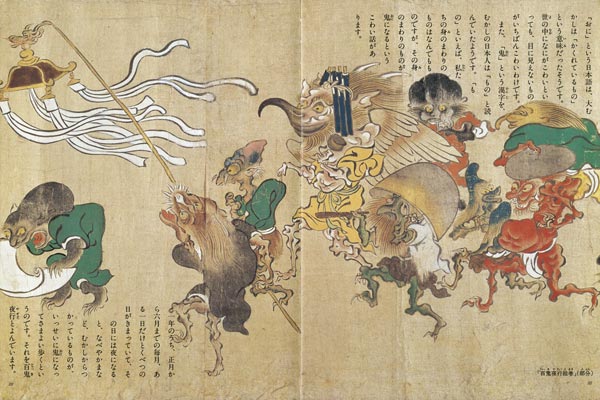 「おに」という日本語は、大む
かしは「かくれているもの」
という意味だったそうです。
世の中になにがこわいとい
っても、目に見えないもの
がいちばんこわいわけです。
また、「鬼」という漢字を、
むかしの日本人は「もの」と読
んでいたようです。「も
の」といえば、私た
ちの身のまわりの
ものはなんでもも
のですが、その身
のまわりのものが
鬼になるという
こわい話があ
ります。
「百鬼夜行絵巻」(部分)
一年のうち、正月か
ら六月までの毎月、あ
る一日だけとくべつの
日がきまっていて、そ
の日には夜になる
と、なべやかまな
ど、むかしからつ
かっているものが、
いっせいに鬼になっ
てさまよい歩くとい
うのです。それを百鬼
夜行とよんでいます。